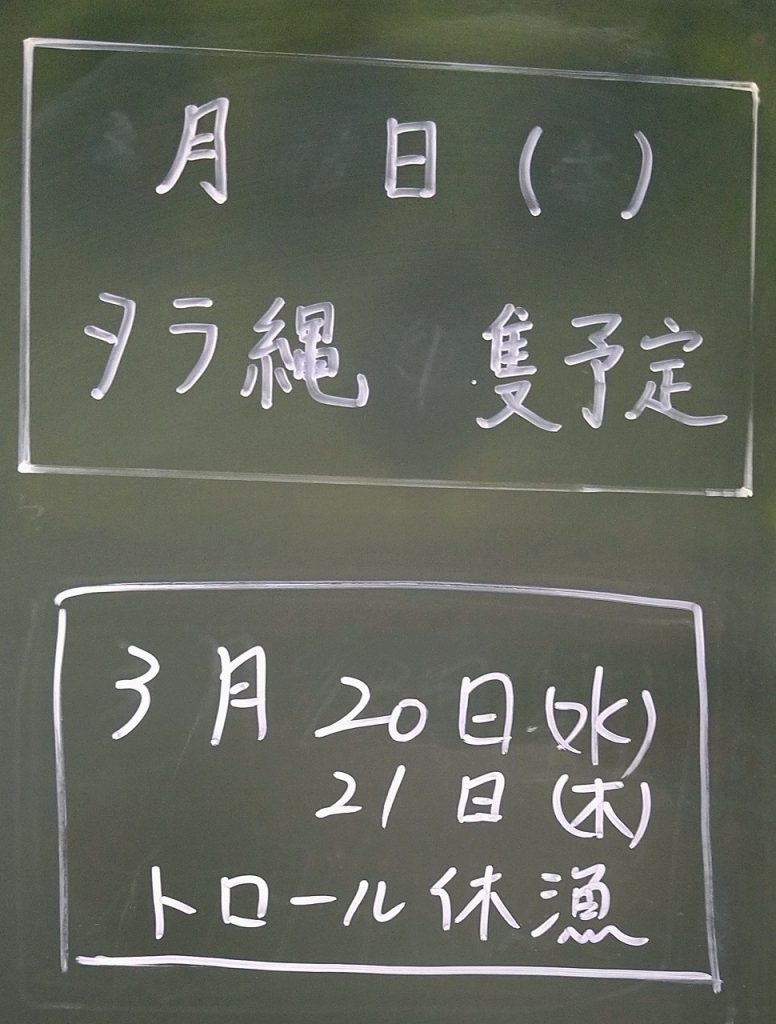 月 日 ( )
タラ縄 隻予定
3月20日(水)
21日(木)
トロール休漁